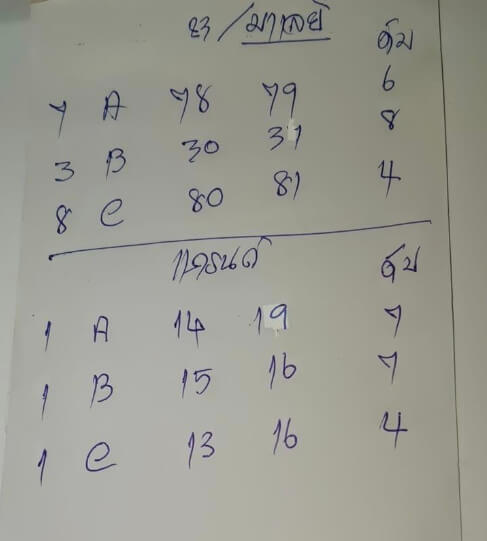 23/มาเลย์ ดับ
7 A 78 79 6
3 B 30 31 8
8 C 80 81 4
แกรนด์ ดับ
1 A 14 19 7
1 B 15 16 7
1 C 13 16 4